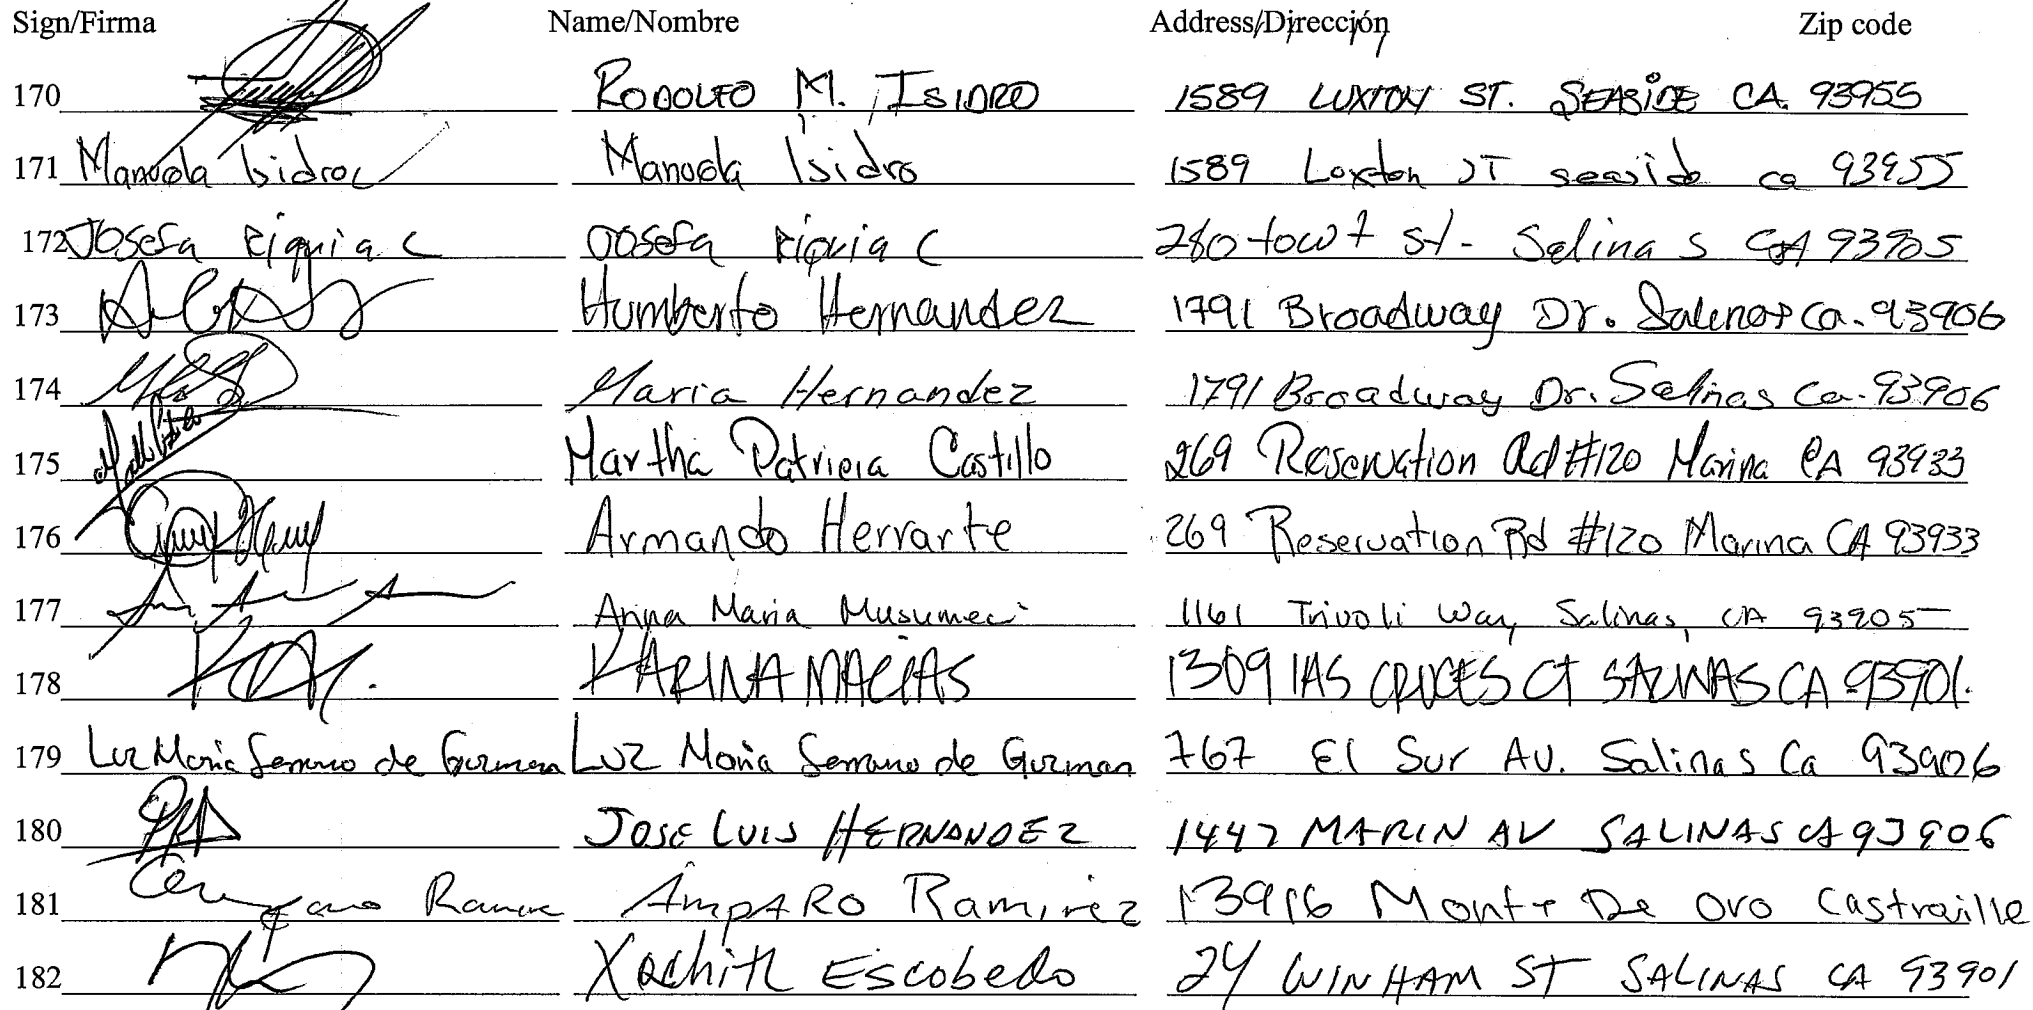 Sign/Firma Name/Nombre Address/Dirección Zip code
170 RODOLFO M. ISIDRO 1589 LUXTON ST. SEASIDE CA. 93955
171 Manuela Isidro Manuela Isidro 1589 Luxton ST seaside ca 93955
172 Josefa C Josefa C 280 st- Salinas CA 93905
173 Humberto Hernandez 1791 Broadway Dr. Salinas Ca. 93906
174 Maria Hernandez 1791 Broadway Dr. Salinas Ca. 93906
175 Martha Patricia Castillo 269 Reservation Rd #120 Marina CA 93933
176 Armando Herrarte 269 Reservation Rd #120 Marina CA 93933
177 Anna Maria Musumeci 1161 Trivoli Way, Salinas, CA 93905
178 KARINA MACIAS 1309 LAS CRUCES CT SALINAS CA 93901.
179 Luz Maria Serrano de Guzman Luz Maria Serrano de Guzman 767 El Sur AV. Salinas Ca 93906
180 JOSE LUIS HERNANDEZ 1447 MARIN AV SALINAS CA 93906
181 AmpARO Ramirez 13916 Monte De Oro Castroville
182 Xochitl Escobedo 24 WINHAM ST SALINAS CA 93901